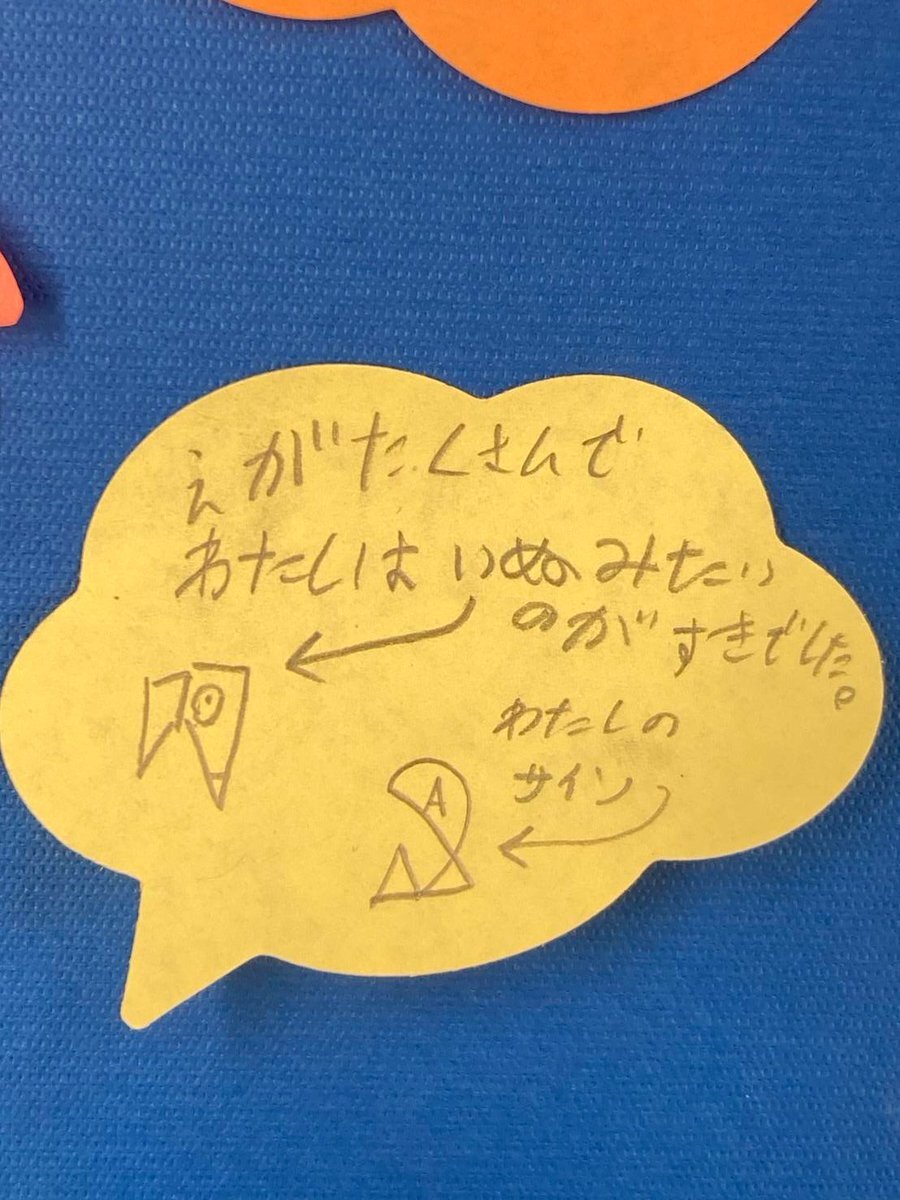 えがたくさんで
わたしは いぬみたい
のがすきでした。
わたしの
サイン
A